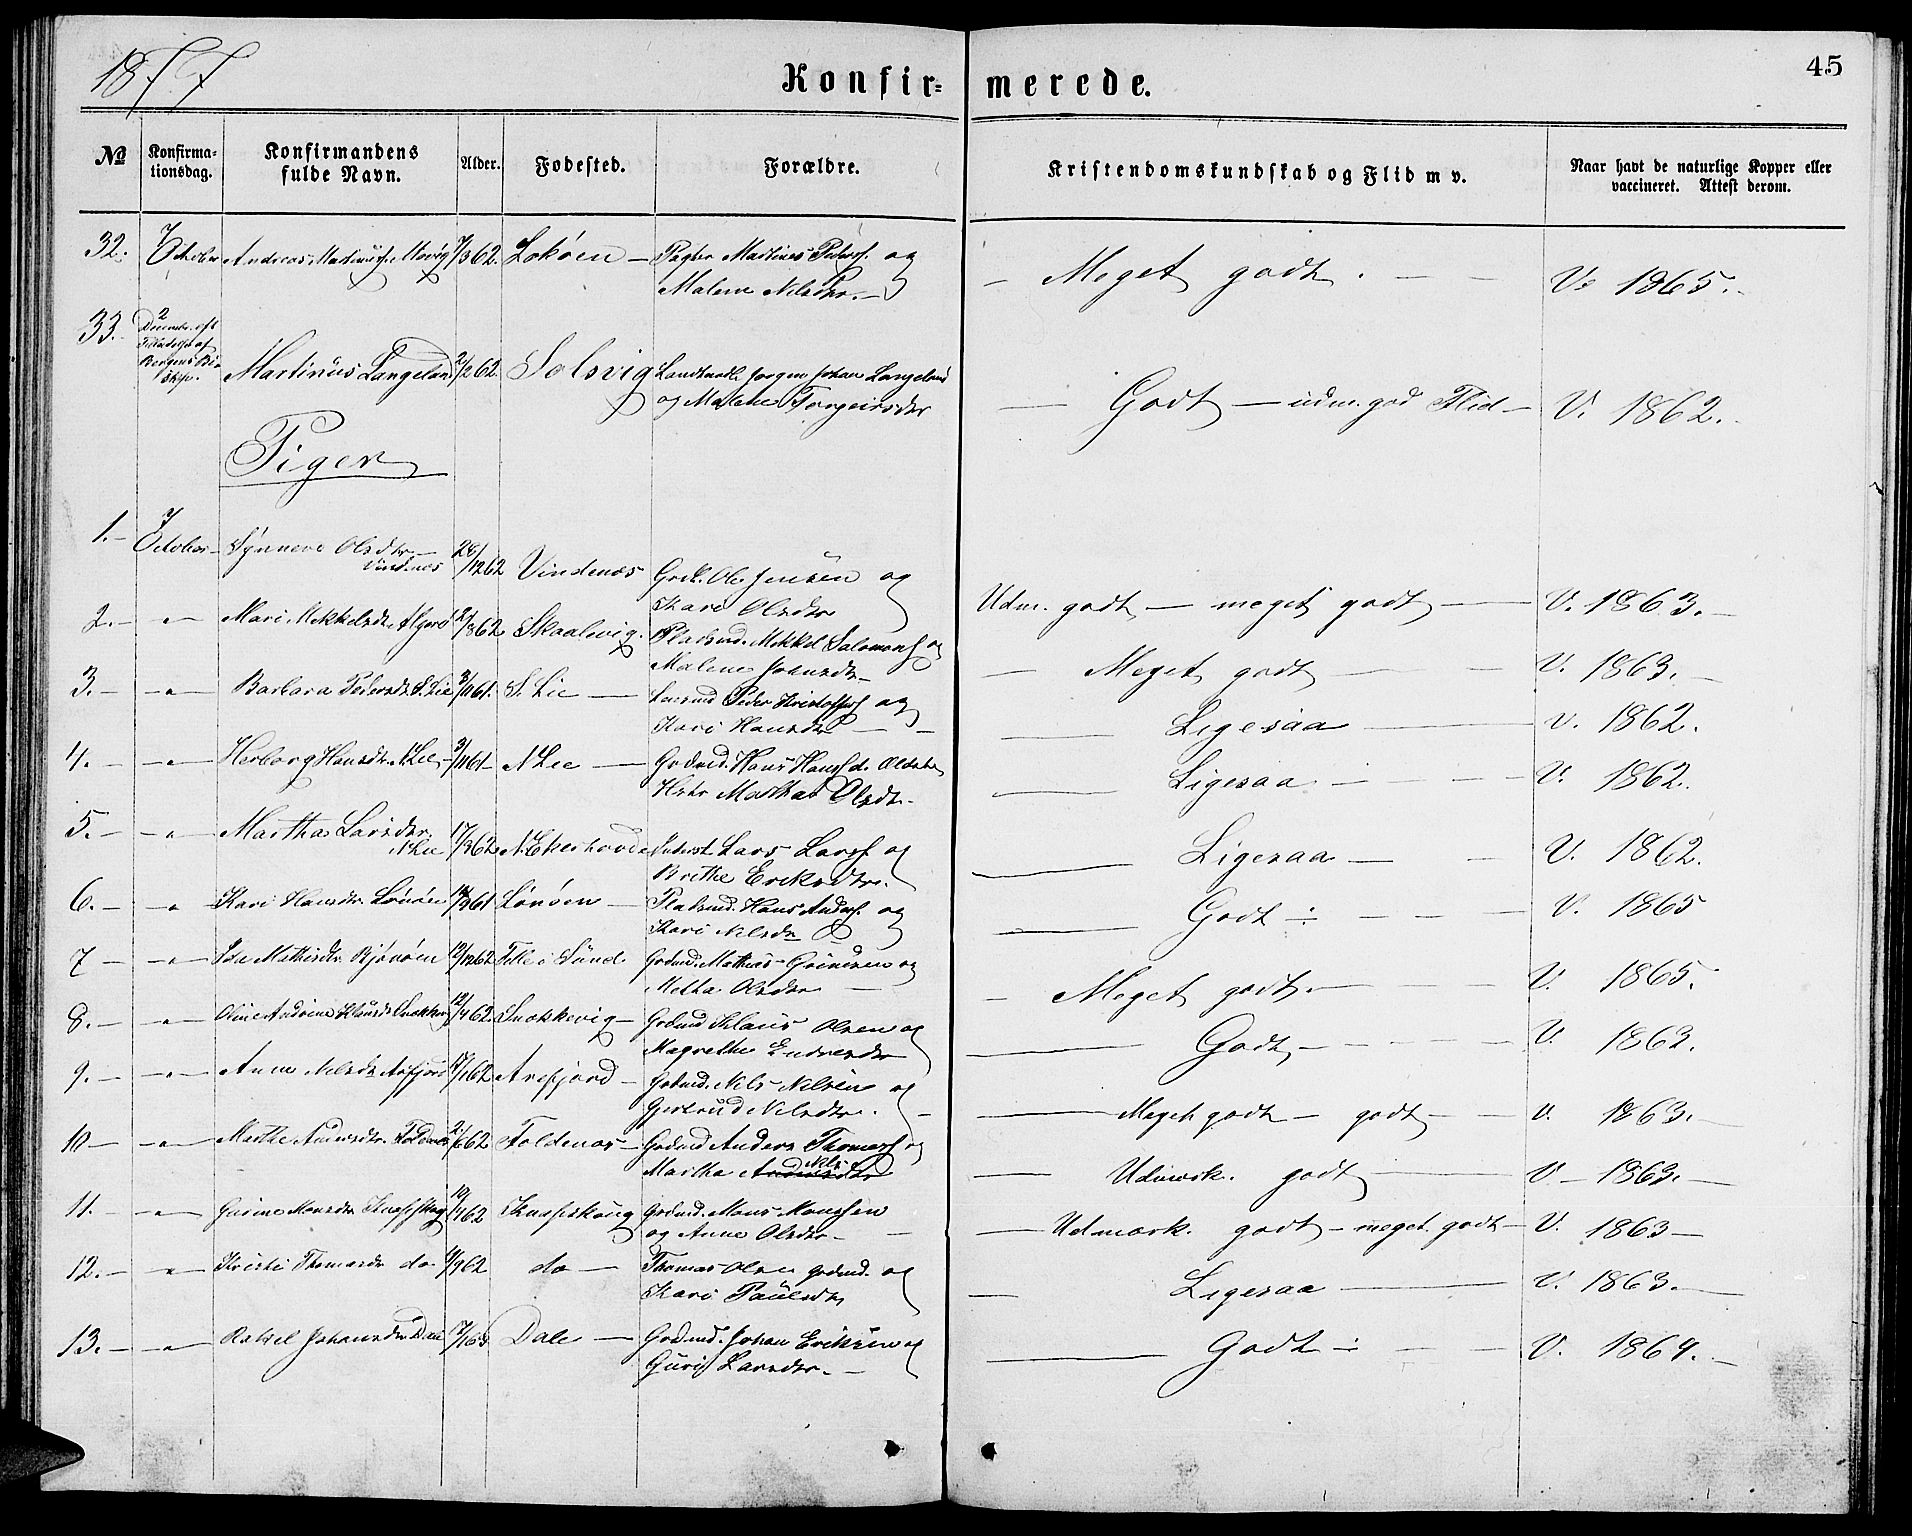 1877
Konfirmerede.
45
No
Konfirmationsdag.
Konfirmandens fulde Navn.
Alder.
Fodested.
Forældre.
Kristendomskundskab og Flid m v.
Naar havt de naturlige Kopper eller vaccineret. Attest derom.
32. 7 October Andreas Martinus. Movig 7/3 62. Lokøen — Martines Peders. og
Malene Nilsdtr. —
— Meget godt. — — V. 1865.
33. 2 December eft. Tilladelse af Bergens Biskop. Martinus Langeland 2/2 62. Solsvig Landhandl. Jørgen Johan Langeland
og Malene Torgeirsdtr
— Godt — udm. god Flid — V. 1862.
Piger
1. — 7 October — Synneve Olsdtr. — Vindenes 28/12 62 Vindenes Grdb. Ole Jensen og
Kari Olsdtr
Udm. godt — meget godt — V. 1863. —
2. — " — Mari Mikkelsdtr. Algerö 2/8 62 Skaalevig. Pladsmd. Mikkel Salomons. og
Malene Johnsdtr —
— Meget godt — V. 1863. —
3. — " — Barbara Pedersdtr. S. Lie 3/11 61. S. Lie — Peder Kristoffers. og
Kari Hansdtr — —
— Ligesaa — V. 1862.
4. — " — Herborg Hansdtr. N Lie, 3/11 61 — N Lie — Grdmd. Hans Hans.
Martha Olsdtr. —
— Ligesaa — V. 1862.
5. — " — Martha Larsdtr. N Lie 17/3 62 N. Ekerhovde Inderst Lars Lars. og
Brithe Eriksdtr.
— Ligesaa — V. 1862.
6. — " — Kari Hansdtr. Lönöen 61 Lönöen — Pladsmd. Hans Anders. og
Kari Nilsdtr
— Godt ÷ — V. 1865
7 — " — Mathisdtr. Bjönöen 12/12 62 Telle i Sund. Grdmd. Mathias og
Metta Olsdtr —
— Meget godt. — V. 1865.
8. — " — Oline Andrine Klausdtr 12/4 62. Snekkevig — Grdmd Klaus Olsen og
Magrethe Endresdtr
— Godt, — V. 1863.
9. — " — Anne Nilsdtr Arefjord 17/1 62 Arefjord — Grdmd. Nils Nilsen og
Gjertrud Nilsdtr.
— Meget godt — godt — V. 1863. —
10 — " — Marthe Andersdtr. Foldnes 2/6 62 Foldenes — Grdmd Anders Thomas. og
Martha Andersdtr Nils
— Udmærk. godt — V — 1863. —
11. — " — Monsdtr Knapskog 10/4 62 Knapskoug Grdmd. Mons Monssen
og Anne Olsdtr —
— Udmærk. godt — meget godt — V. 1863 —
12. — " — Kristi Thomasdtr do. 4/9 62 do — Thomas Olsen grdmd. og
Kari Paulsdtr
— Ligesaa — V. 1863. —
13. — " — Rakel Johansdtr Dale Dale — Grdmd. Johan Eriksen og
Guri Larsdtr. —
— Godt ÷ — — V. 1864. —